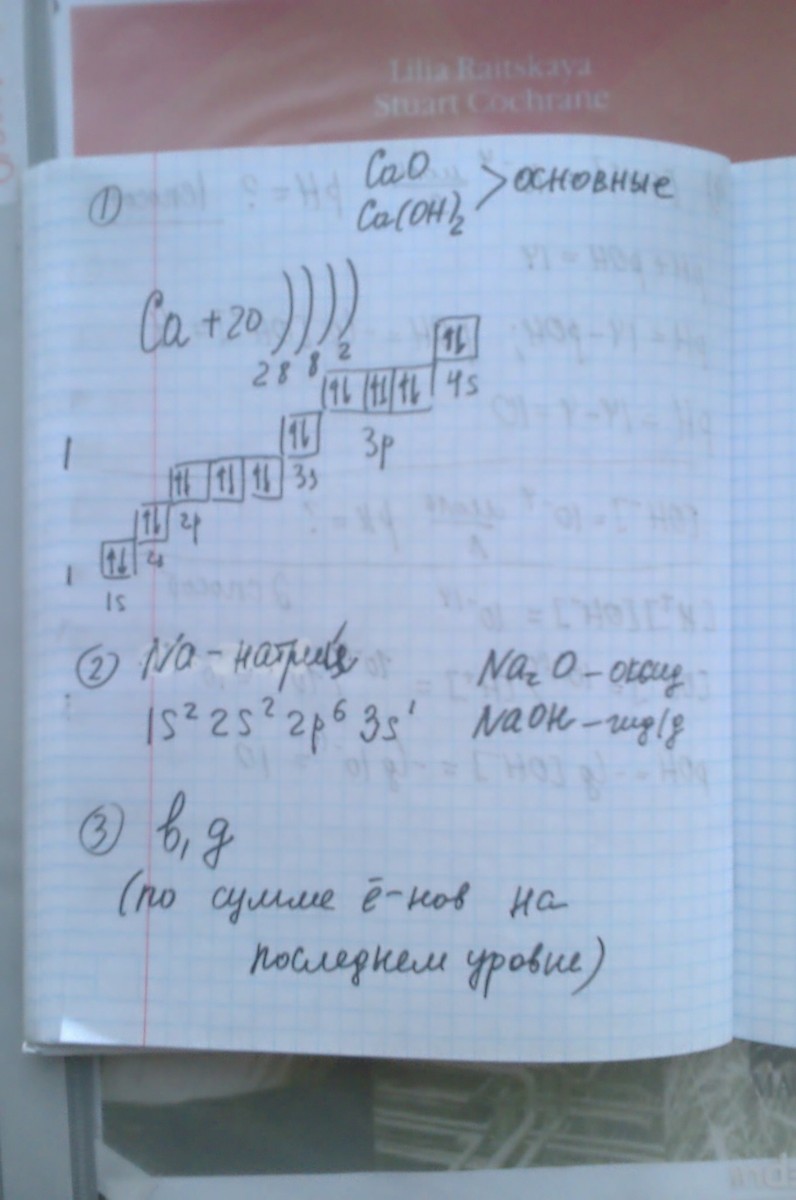 Lilia Raitskaya
Stuart Cochrane
① CaO
Ca(OH)₂ > основные
Ca +20 ) ) ) )
2 8 8 2
↑↓
↑↓ ↑↓ ↑↓ 4s
↑↓ 3p
↑↓ ↑↓ ↑↓ 3s
↑↓ 2p
↑↓ 2s
1s
② Na - натрий Na₂O - оксид
1s² 2s² 2p⁶ 3s¹ NaOH - гид/д
③ в, д
(по сумме ē-нов на
последнем уровне)